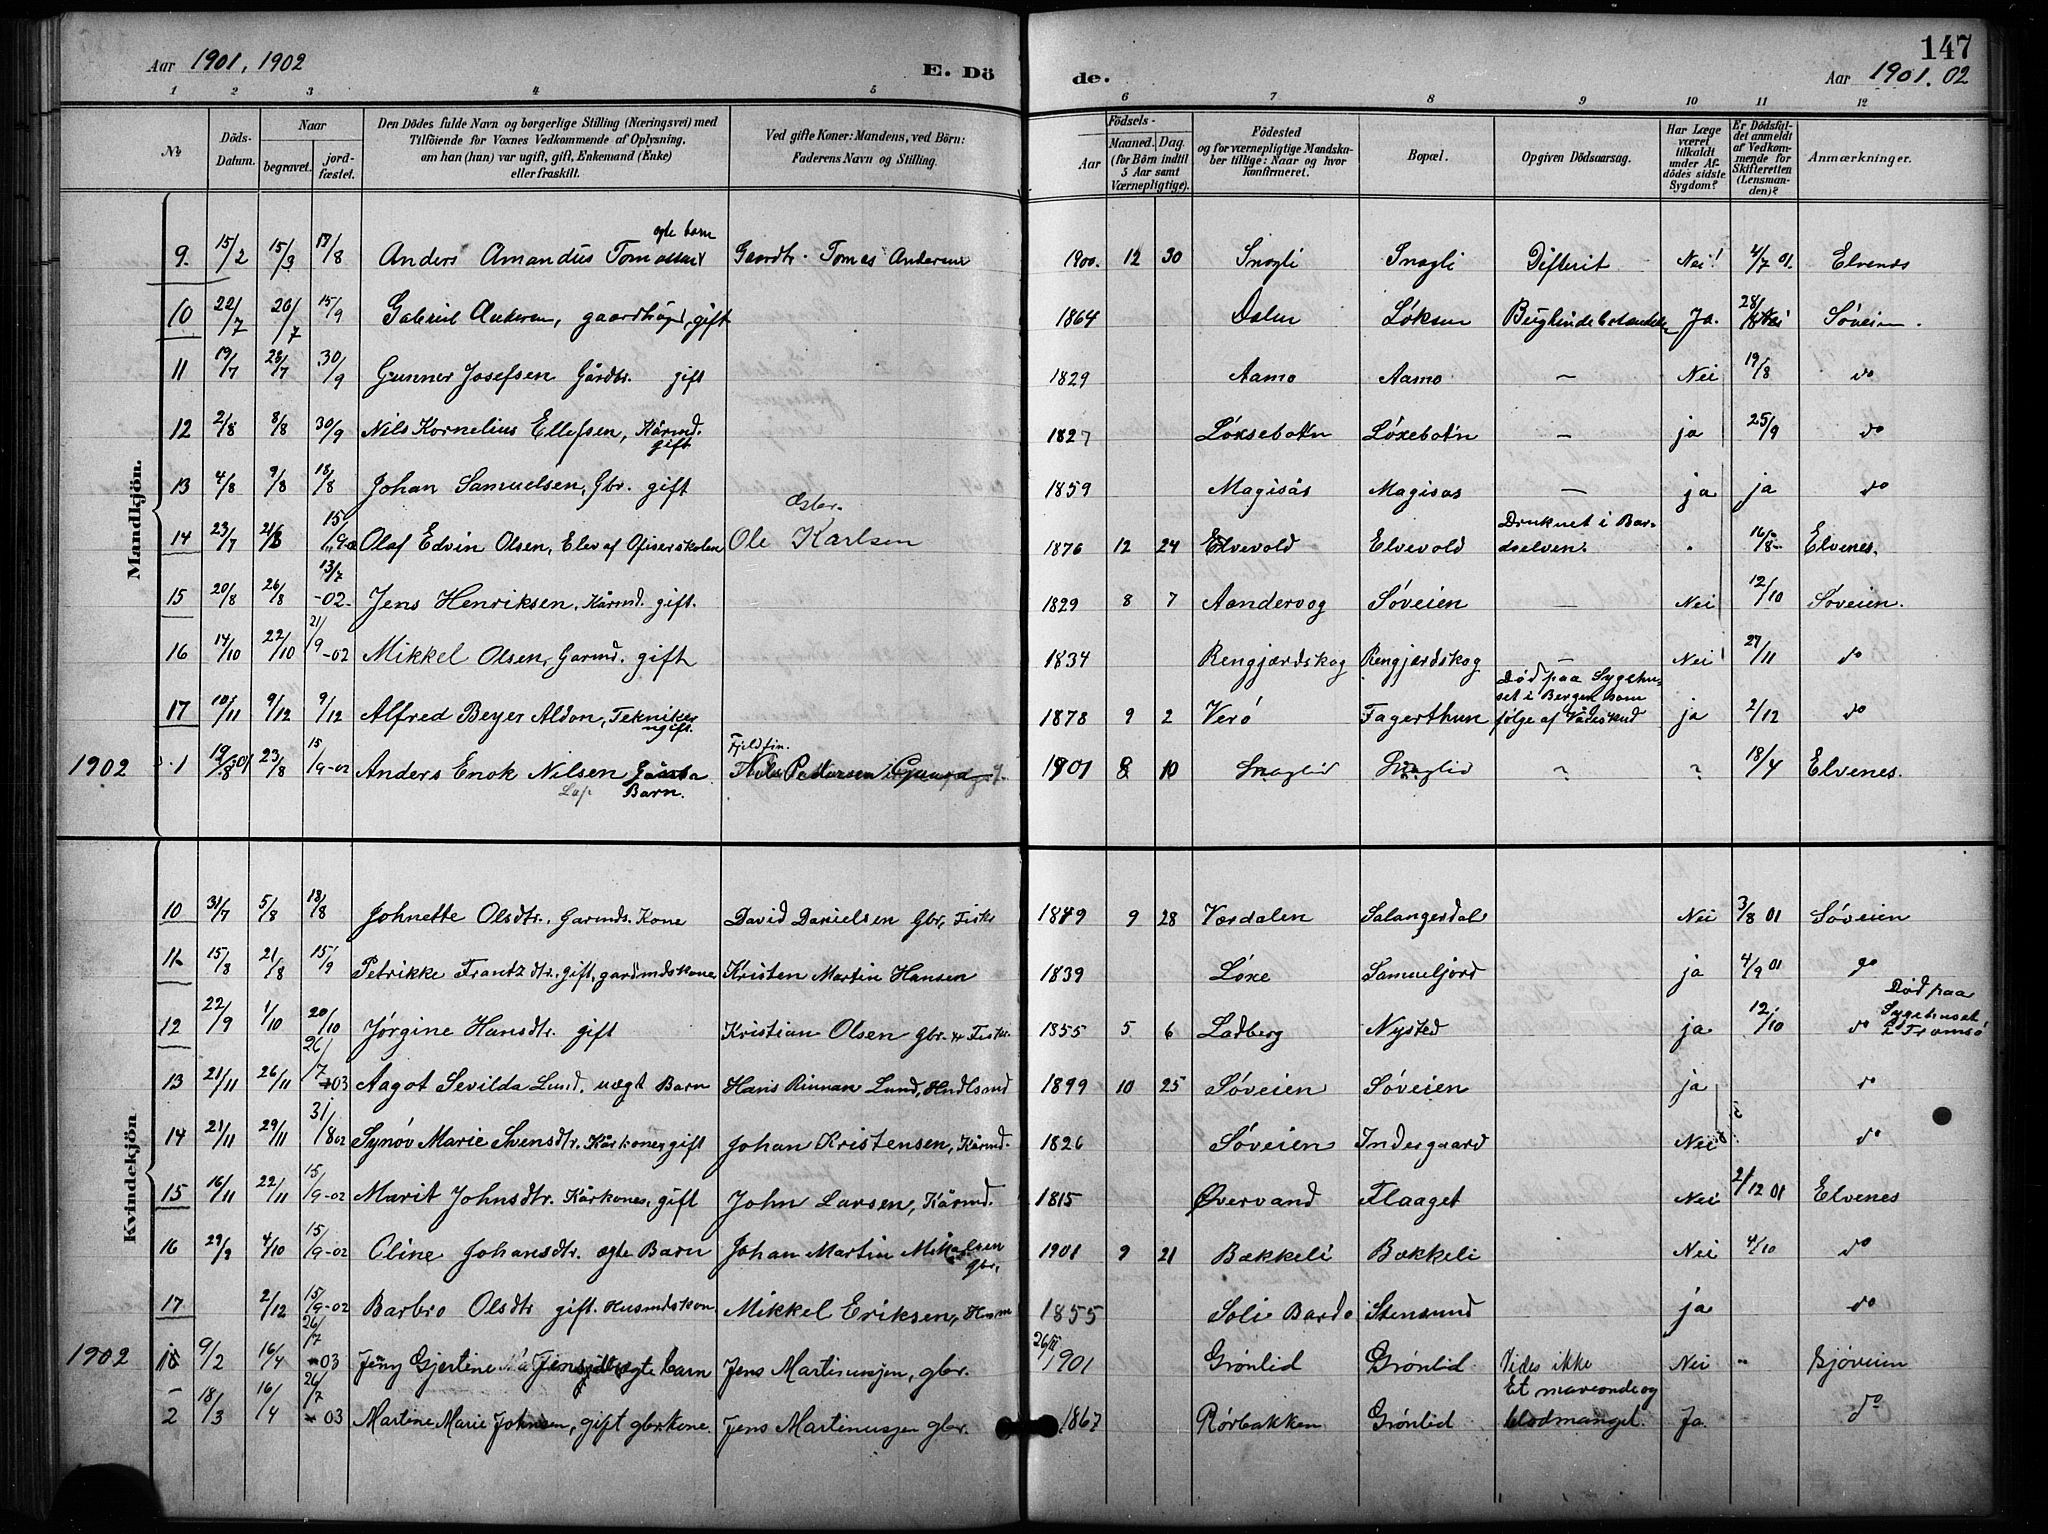 147
Aar 1901, 1902 E. Dö de. Aar 1901. 02
1 2 3 4 5 6 7 8 9 10 11 12
№ Döds-Datum. Naar begravet. jord-fæstet. Den Dödes fulde Navn og borgerlige Stilling (Næringsvei) med Tilföiende for Voxnes Vedkommende af Oplysning, om han (hun) var ugift, gift, Enkemand (Enke) eller fraskilt. Ved gifte Koner: Mandens, ved Börn: Faderens Navn og Stilling. Födsels- Aar Maaned. Dag. (for Börn indtil 5 Aar samt Værnepligtige). Födested og for værnepligtige Mandskaber tillige: Naar og hvor konfirmeret. Bopæl. Opgiven Dödsaarsag. Har Læge været tilkaldt under Afdödes sidste Sygdom? Er Dödsfaldet anmeldt af Vedkommende for Skifteretten (Lensmanden)? Anmærkninger.
Mandkjön.
9. 15/2 15/3 17/8 Anders Amandus Tomassen ægte barn Gaardbr. Tomas Andersen 1900. 12 30 Snogli Snogli Difterit Nei! 2/7 01. Elvenes
10 22/7 26/7 15/9 Gabriel Andersen, gaardbruger, gift 1864 Dalen Løksen Ja. Søveien.
11 19/7 28/7 30/9 Gunner Josefsen Gårdbr. gift 1829 Aamo Aamo — Nei 19/8 do
12 2/8 8/8 30/9 Nils Kornelius Ellefsen, Kårmd. gift 1827 Løksebotn Løxebotn — ja 25/9 do
13 4/8 9/8 18/8 Johan Samuelsen, Gbr. gift 1859 Magisås Magisas — ja ja do
14 23/7 21/8 15/9 02 Olaf Edvin Olsen, Elev af Ofiserskolen Ole Karlsen 1876 12 24 Elvevold Elvevold Druknet i Bardselven. 16/8 Elvenes.
15 20/8 26/8 13/7 -02- Jens Henriksen, Kårmd. gift. 1829 8 7 Aandervog Søveien — Nei 12/10 Søveien.
16 14/10 22/10 21/9 -02 Mikkel Olsen, Garmd. gift 1834 Rengjærdskog Rengjerdskog — Nei! 27/11 do
17 10/11 9/12 9/12 Alfred Beyer Aldon, Tekniker ugift. 1878 9 2 Verø Fagerthun Død paa Sygehuset i Bergen som følge af Vådeskud ja 2/12 do
1902 1 19/8 01 23/8 15/9-02 Anders Enok Nilsen Lap Barn. Fjeldfin. Nils Pedersen 1901 8 10 Snoglid Snoglid ? ? 18/4 Elvenes.
Kvindekjön
10 31/7 5/8 18/8 Johnette Olsdtr. Garmds. Kone David Danielsen Gbr, Fisk 1849 9 28 Værdalen Salangerdal Nei 3/8 01 Søveien
11 15/8 21/8 15/9 Petrikke Frantzdtr. gift, gardmdskone Kristen Martin Hansen 1839 Løxe Samueljord ja 4/9 01 do
12 22/9 1/10 20/10 Jørgine Hansdtr. gift Kristian Olsen Gbr. & Fisker 1855 5 6 Ladberg Nysted ja 12/10 do Død paa Sygehuset i Tromsø
13 21/11 26/11 26/7 03 Aagot Sevilda Lund, uægt Barn Hans Rinnan Lund, Hndlsmd 1899 10 25 Søveien Søveien ja do
14 21/11 29/11 31/8 02 Synøv Marie Svensdtr. Kårkone, gift Johan Kristensen, Kårmd. 1826 Søveien Indergaard Nei do
15 16/11 22/11 15/9-02 Marit Johnsdtr. Kårkones, gift John Larsen, Kårmd. 1815 Øvervand Flaaget Nei 2/12 01 Elvenes
16 29/9 4/10 15/9-02 Oline Johansdtr. ægte Barn Johan Martin Mikalsen Gbr, 1901 9 21 Bækkeli Bækkeli Nei 4/10 do
17 2/12 15/9-02 Barbro Olsdtr gift. Husmdskon Mikkel Eriksen, Husm 1855 Soli Bardo Stensund ja do
1902 9/2 16/4 26/7 03 Jeny Gjertine ægte barn Jens Martinusjen, gbr. 26/11 1901 Grønlid Grønlid Vides ikke Nei " Sjøveien
2 18/3 16/4 26/7 03 Martine Marie Johnsen, gift gbr.kone. Jens Martinusjen gbr. 1867 Rørbakken Grønlid Et maveonde og blodmangel. Ja. do